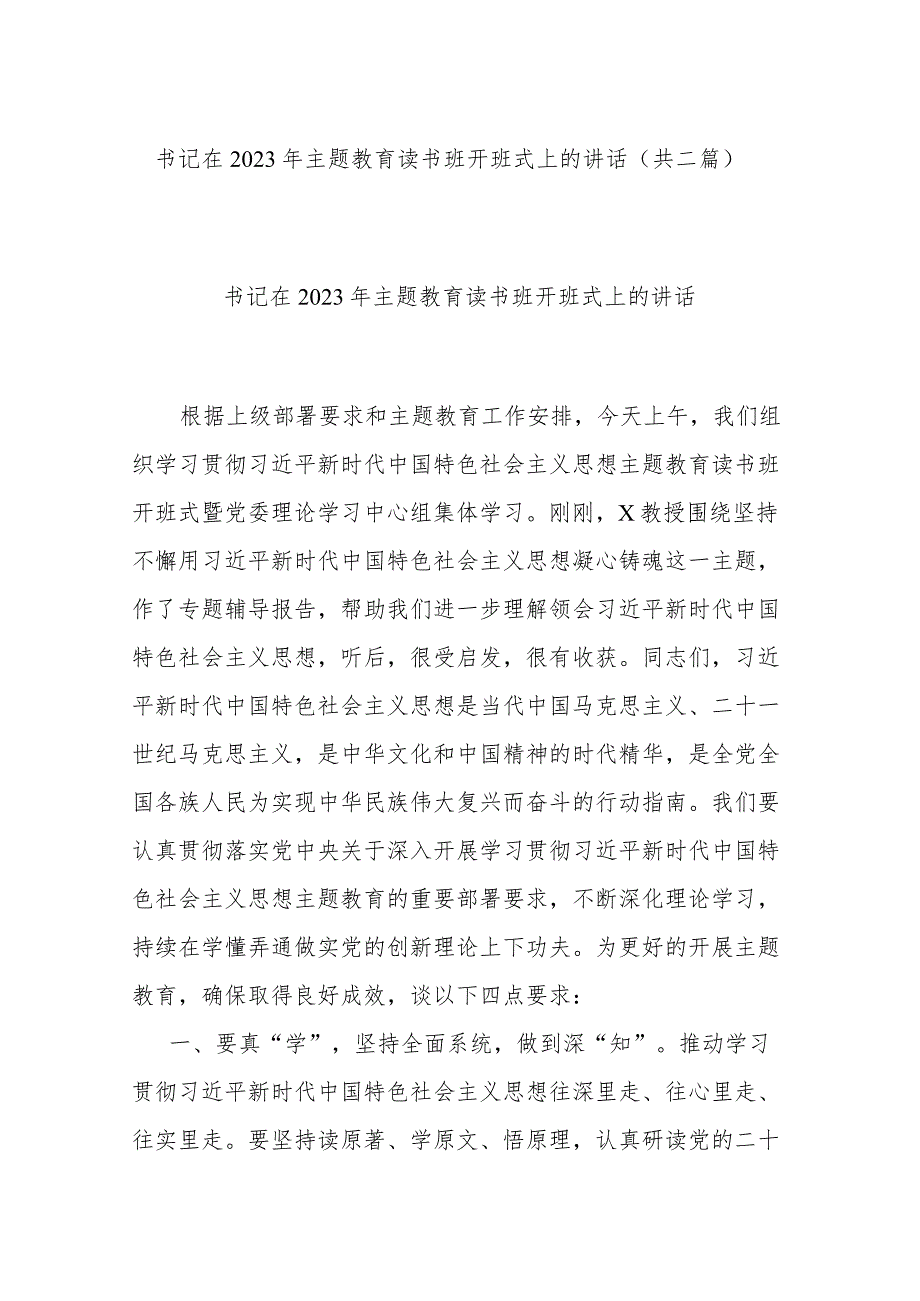 书记在 2023 年主题教育读书班开班式上的讲话（共二篇）
书记在 2023 年主题教育读书班开班式上的讲话
根据上级部署要求和主题教育工作安排，今天上午，我们组
织学习贯彻习近平新时代中国特色社会主义思想主题教育读书班
开班式暨党委理论学习中心组集体学习。刚刚，X 教授围绕坚持
不懈用习近平新时代中国特色社会主义思想凝心铸魂这一主题，
作了专题辅导报告，帮助我们进一步理解领会习近平新时代中国
特色社会主义思想，听后，很受启发，很有收获。同志们，习近
平新时代中国特色社会主义思想是当代中国马克思主义、二十一
世纪马克思主义，是中华文化和中国精神的时代精华，是全党全
国各族人民为实现中华民族伟大复兴而奋斗的行动指南。我们要
认真贯彻落实党中央关于深入开展学习贯彻习近平新时代中国特
色社会主义思想主题教育的重要部署要求，不断深化理论学习，
持续在学懂弄通做实党的创新理论上下功夫。为更好的开展主题
教育，确保取得良好成效，谈以下四点要求：
一、要真“学”，坚持全面系统，做到深“知”。推动学习
贯彻习近平新时代中国特色社会主义思想往深里走、往心里走、
往实里走。要坚持读原著、学原文、悟原理，认真研读党的二十